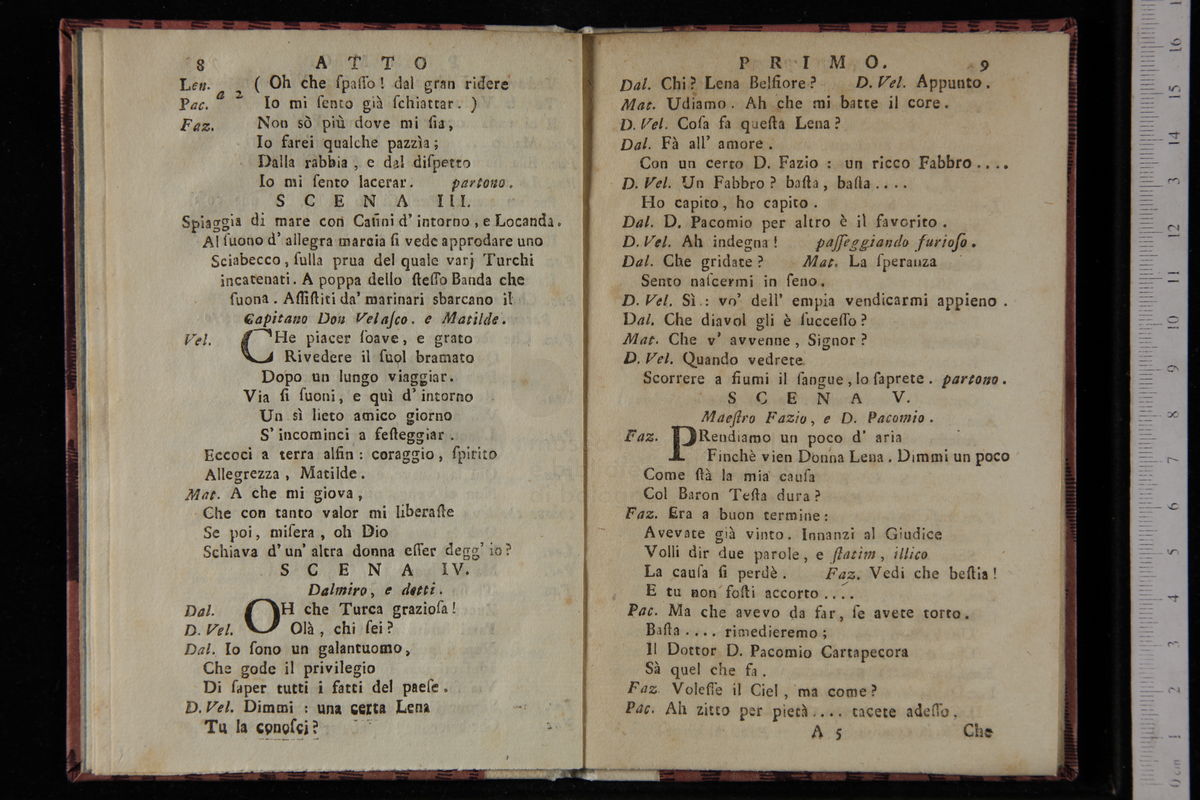 8 ATTO
Len. a 2 ( Oh che ſpaſſo! dal gran ridere
Pac. Io mi ſento già ſchiattar. )
Faz. Non sò più dove mi ſia,
Io farei qualche pazzìa;
Dalla rabbia, e dal diſpetto
Io mi ſento lacerar. partono.
SCENA III.
Spiaggia di mare con Caſini d' intorno, e Locanda.
Al ſuono d' allegra marcia ſi vede approdare uno
Sciabecco, ſulla prua del quale varj Turchi
incatenati. A poppa dello ſteſſo Banda che
ſuona. Aſſiſtiti da' marinari sbarcano il
Capitano Don Velaſco. e Matilde.
Vel. CHe piacer ſoave, e grato
Rivedere il ſuol bramato
Dopo un lungo viaggiar.
Via ſi ſuoni, e quì d' intorno
Un sì lieto amico giorno
S' incominci a feſteggiar.
Eccoci a terra alfin: coraggio, ſpirito
Allegrezza, Matilde.
Mat. A che mi giova,
Che con tanto valor mi liberaſte
Se poi, miſera, oh Dio
Schiava d' un' altra donna eſſer degg' io?
SCENA IV.
Dalmiro, e detti.
Dal. OH che Turca grazioſa!
D. Vel. Olà, chi ſei?
Dal. Io ſono un galantuomo,
Che gode il privilegio
Di ſaper tutti i fatti del paeſe.
D. Vel. Dimmi: una certa Lena
Tu la conoſci?
PRIMO. 9
Dal. Chi? Lena Belfiore? D. Vel. Appunto.
Mat. Udiamo. Ah che mi batte il core.
D. Vel. Coſa fa queſta Lena?
Dal. Fà all' amore.
Con un certo D. Fazio: un ricco Fabbro....
D. Vel. Un Fabbro? baſta, baſta....
Ho capito, ho capito.
Dal. D. Pacomio per altro è il favorito.
D. Vel. Ah indegna! paſſeggiando furioſo.
Dal. Che gridate? Mat. La ſperanza
Sento naſcermi in ſeno.
D. Vel. Sì: vo' dell' empia vendicarmi appieno.
Dal. Che diavol gli è ſucceſſo?
Mat. Che v' avvenne, Signor?
D. Vel. Quando vedrete
Scorrere a fiumi il ſangue, lo ſaprete. partono.
SCENA V.
Maeſtro Fazio, e D. Pacomio.
Faz. PRendiamo un poco d' aria
Finchè vien Donna Lena. Dimmi un poco
Come ſtà la mia cauſa
Col Baron Teſta dura?
Faz. Era a buon termine:
Avevate già vinto. Innanzi al Giudice
Volli dir due parole, e ſtatim, illico
La cauſa ſi perdè. Faz. Vedi che beſtia!
E tu non foſti accorto....
Pac. Ma che avevo da far, ſe avete torto.
Baſta.... rimedieremo;
Il Dottor D. Pacomio Cartapecora
Sà quel che fa.
Faz Voleſſe il Ciel, ma come?
Pac. Ah zitto per pietà.... tacete adeſſo.
A 5 Che
0 cm 1 2 3 4 5 6 7 8 9 10 11 12 13 14 15 16